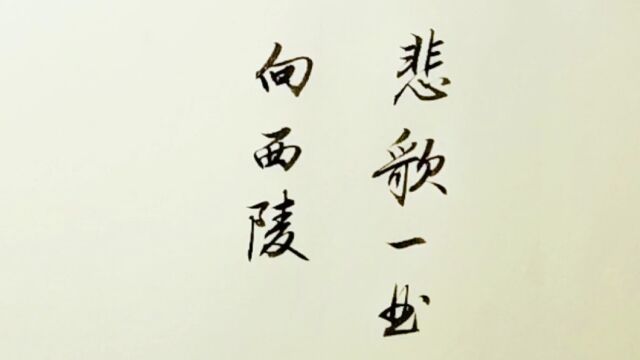 悲歌一曲
向西陵